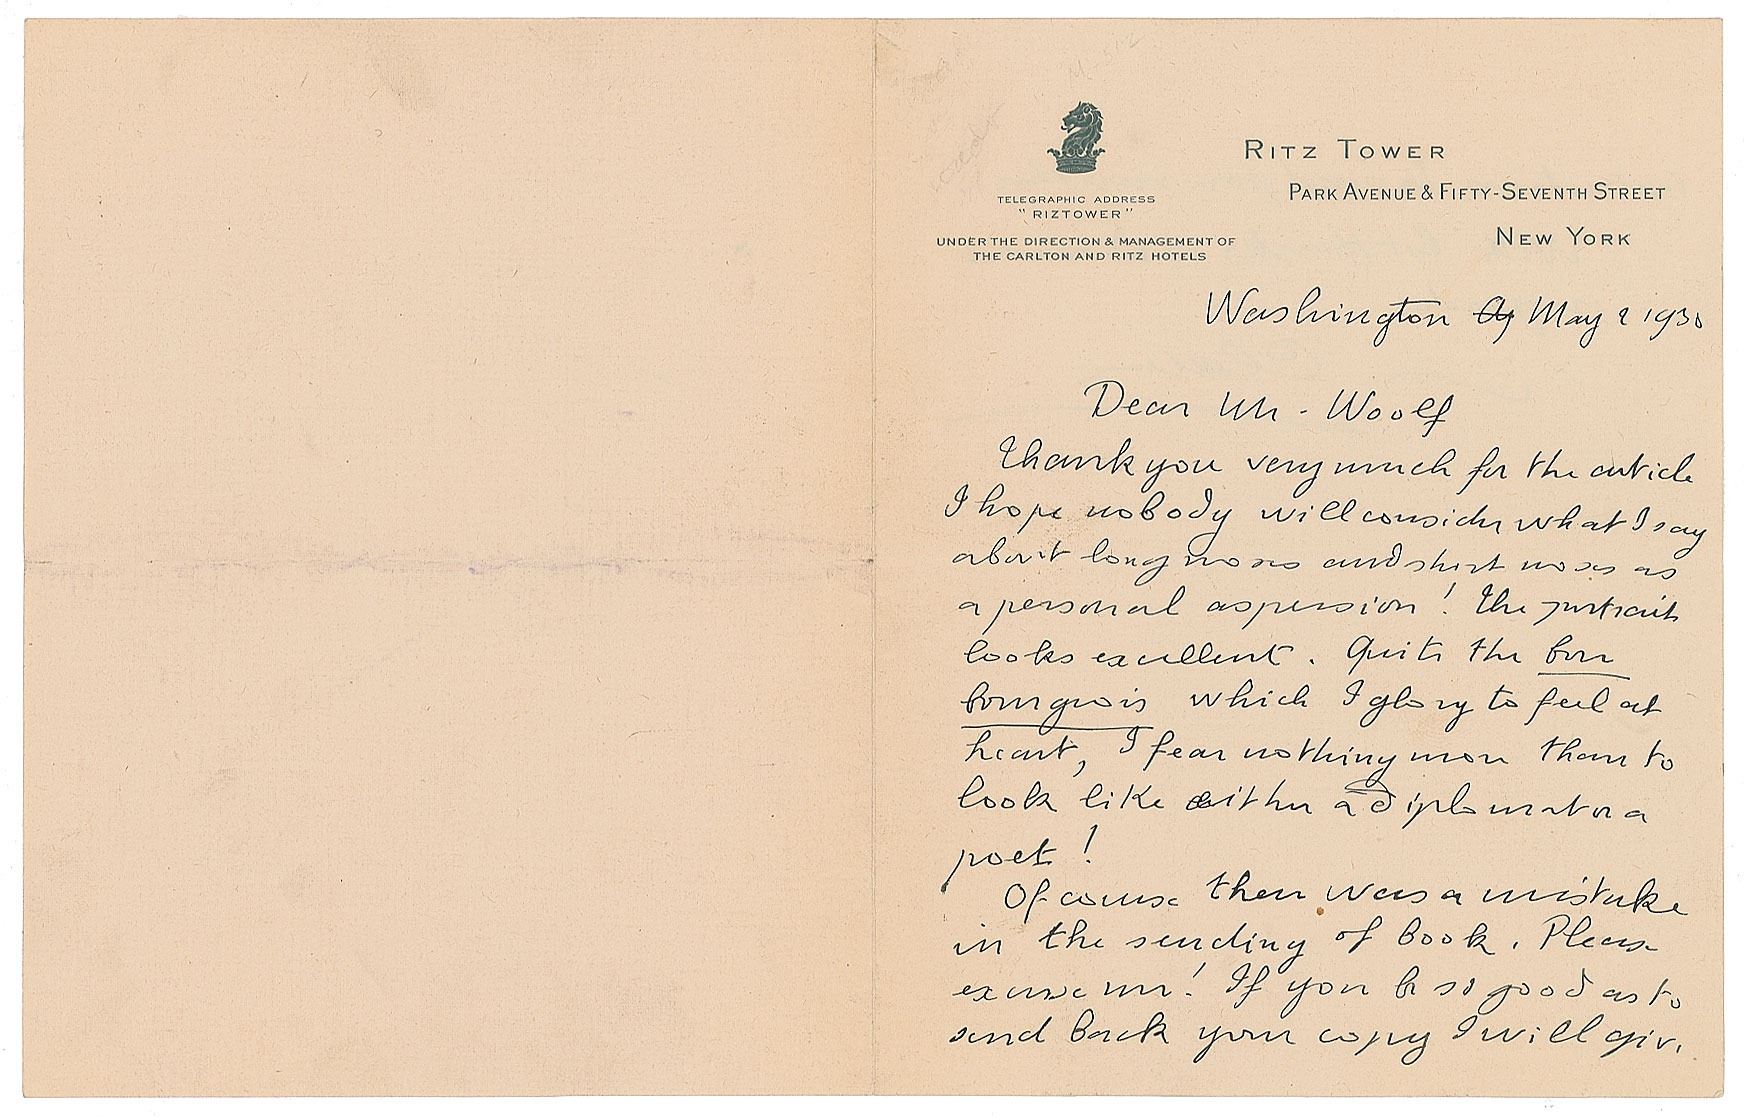 RITZ TOWER
PARK AVENUE & FIFTY-SEVENTH STREET
NEW YORK
TELEGRAPHIC ADDRESS
"RIZTOWER"
UNDER THE DIRECTION & MANAGEMENT OF
THE CARLTON AND RITZ HOTELS
Washington May 2 1930
Dear Mr - Woolf
Thank you very much for the article
I hope nobody will consider what I say
about long noses and short noses as
a personal aspersion! The portrait
looks excellent. Quite the bon
bourgeois which I glory to feel at
heart, I fear nothing more than to
look like either a diplomat or a
poet!
Of course there was a mistake
in the sending of book. Please
excuse me! If you be so good as to
send back your copy I will give